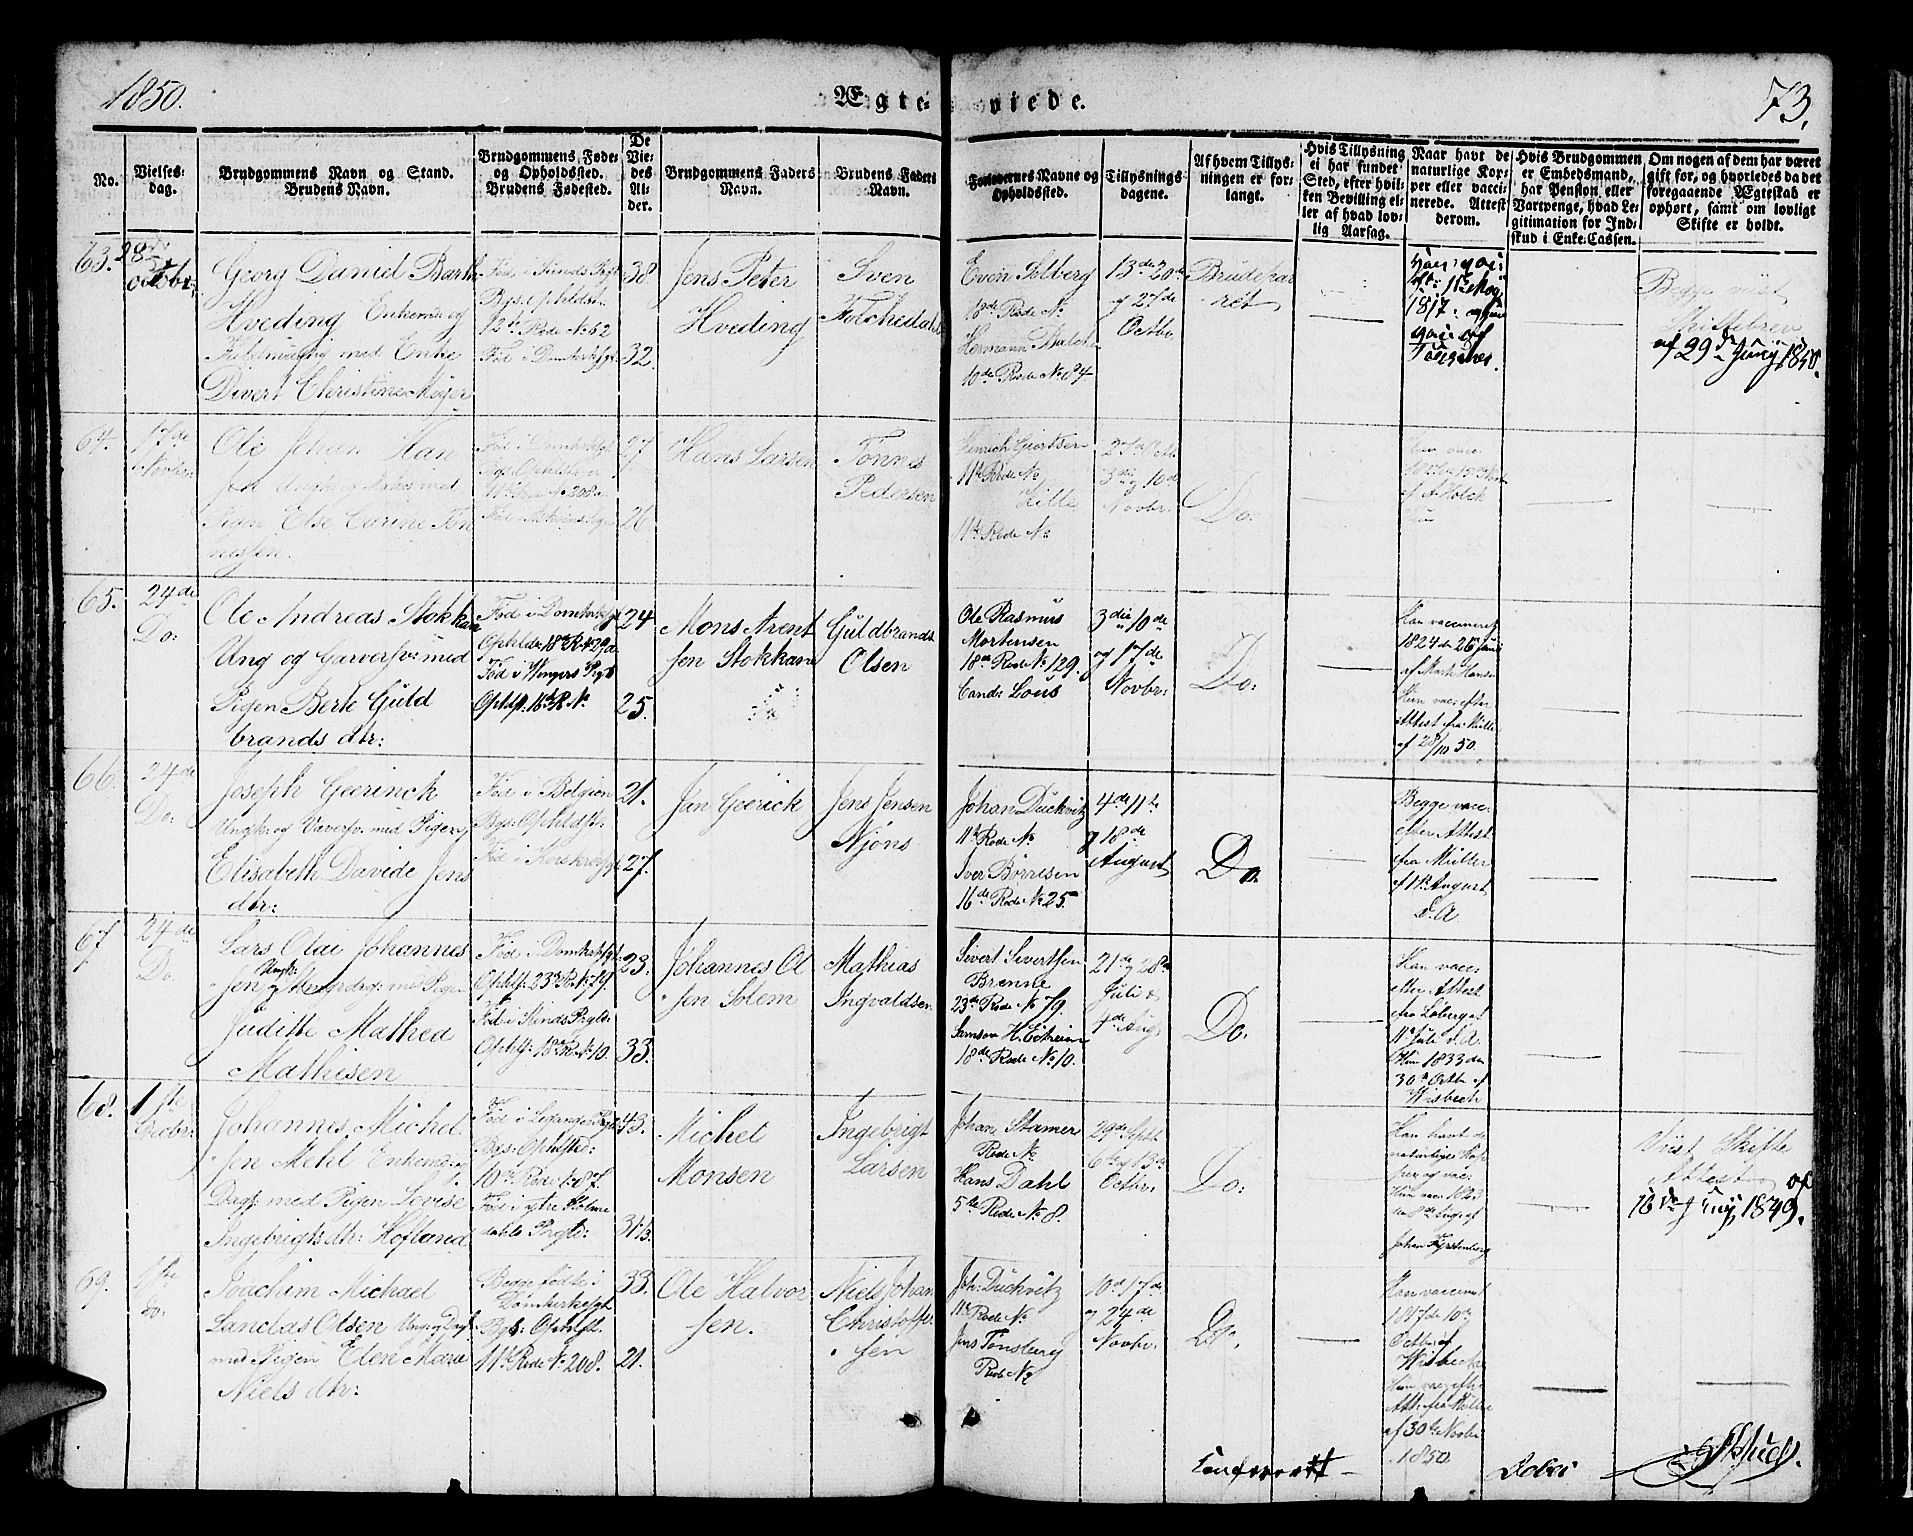 1850.
Ægte-
viede.
73,
No.
Vielses-
dag.
Brudgommens Navn og Stand.
Brudens Navn.
Brudgommens Føde-
og Opholdssted.
Brudens Fødested.
De
Vie-
des
Al-
der.
Brudgommens Faders
Navn.
Brudens Faders
Navn.
Forlovernes Navne og
Opholdssted.
Tillysnings-
dagene.
Af hvem Tillys-
ningen er for-
langt.
Hvis Tillysning
ei har fundet
Sted, efter hvil-
ken Bevilling el-
ler af hvad lov-
lig Aarsag.
Naar havt de
naturlige Kop-
per eller vacci-
nerede. Attest
derom.
Hvis Brudgommen
er Embedsmand,
har Pension eller
Vartpenge, hvad Le-
gitimation for Ind-
skud i Enke-Cassen.
Om nogen af dem har været
gift før, og hvorledes da det
foregaaende Ægteskab er
ophørt, samt om lovligt
Skifte er holdt.
63.
28
Octobr:
Georg Daniel Barth
Hveding Enkemd: og
med Enke
Divert Christine Meyer
12te Rode No 52
Fød i Domkirkesgt
38
32.
Jens Peter
Hveding
Sven
Folchedahl
Even Solberg
18de Rode No
Hermann Balch
10de Rode No 84
13de 20de
og 27de
Octbr
Brudepar
ret
1817.
Begge viist
Skiftebrev
af 29de Juny 1850.
64.
17de
Novber
Ole Johan Han
sen Ungk: og med
Pigen Else Carine Tøn
nessen.
Fød i Domkirksgt
27
26
Hans Larsen
Tønnes
Pedersen
Hinrich Geertsen
11te Rode No
11te Rode No
27de Octb.
3die og 10de
Novbr.
Do.
65.
24de
Do:
Ole Andreas Stokkan
Ung og Garversv: med
Pigen Berte Guld
brands dtr:
Fød i Domkirksgt
24
25.
Mons Arent
sen Stokkan
Guldbrands
Olsen
Ole Rasmus
Mortensen
18de Rode No 129.
Cand: Lous
3die 10de
og 17de
Novbr:
Do:
Han vaccineret
1824 den 26 Juni
af Mark Hansen
Hun vac: efter
Attest fra Müller
af 28/10 50.
66.
24de
Do:
Joseph Geerinck
Ungk: og Væversv: med Pigen
Elisabeth Davide Jens
dtr:
Fød i Belgien
Bgs: Opholdst:
Fød i Korskirksgt
21.
27.
Jan Geerick
Jens Jensen
Njøns
Johan Duckwitz
11te Rode No
Iver Børresen
16de Rode No 25.
4de 11te
og 18de
August
Do.
Begge vacc:
efter Attest
fra Müller
af 11te August
d. A.
67
24de
Do.
Lars Olai Johannes
sen Ungk: med Pigen
Juditte Mathea
Mathisen
Fød i Domkirksgt
Opholst: 23de R. No 79.
Opholst: 18de R. No 10.
23.
33.
Johannes Ol
sen Solem
Mathias
Ingvaldsen
Sivert Sivertsen
Brenne
23de Rode No 79.
Samson H. Eitreim
18de Rode No 10.
21de og 28de
Juli &
4de Aug:
Do:
Han vacc:
efter Attest
fra Løberg af
11te Juli d. A.
Hun 1833 den
30te Octbr af
Wisbech
68.
1ste
Decbr:
Johannes Michel
sen Mehl Enkemd: og
Dagk: med Pigen Lovise
Ingebrigts dtr: Hofland
Bgs: Opholsted:
10de Rode No 87.
Fød i ytre Holme
dahls Prgld:
43.
31½.
Michel
Monsen
Ingebrigt
Larsen
Johan Stamer
Rode No
Hans Dahl
5te Rode No 8.
29de Septb
6te og 13de
Octbr:
Do:
Han havt de
naturlige Kop
per og vac:
Hun vac: 1823
den 8de Aug: af
Johan Fyrstenberg
Viist Skifte
Attest af
16de Juny 1849.
69.
1ste
Do:
Joachim Michael
Landaas Olsen Ungk: og Dagk:
med Pigen Elen Marie
Niels dtr:
Begge fødte i
Domkirkesgt
Bgs: Opholst:
11te Rode No 208.
33.
21.
Ole Halvor
sen.
Niels Johan
Christoffer
sen
Joh: Duckwitz
11te Rode No
Jens Tønsberg
Rode No
10de 17de
og 24de
Novbr:
Do.
Han vaccineret
1817 den 10de
Octbr: af
Wisbech
Hun vac: efter
Att: fra Müller
af 30te Novbr
1850.